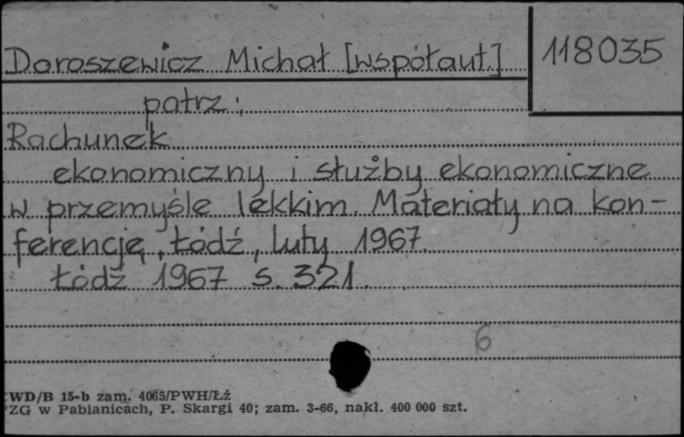 Doroszewicz Michał [współaut]
118035
patrz:
Rachunek
ekonomiczny i służby ekonomiczne
w przemyśle lekkim. Materiały na kon-
ferencję, Łódź, luty 1967.
Łódź 1967 s. 321.
6
WD/B 15-b zam. 4065/PWH/Łź
ZG w Pabianicach, P. Skargi 40; zam. 3-66, nakł. 400 000 szt.